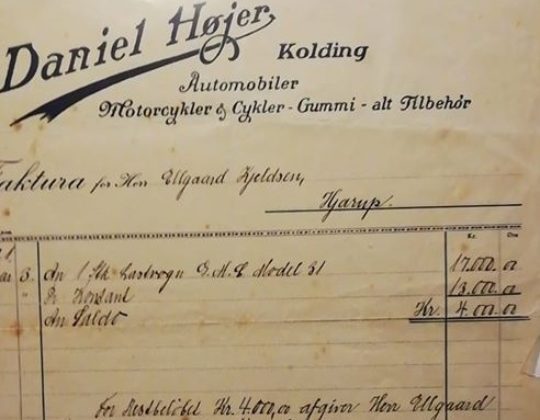 Daniel Højer,
Kolding
Automobiler
Motorcykler & Cykler - Gummi - alt Tilbehør
Faktura for Herr Ulgaard Kjeldsen,
Hjarup.
Kr. Øre
3. An 1 Stk Lastvogn G.M.C. Model 31 17.000.00
" Pr Kontant 13.000.00
An Saldo Kr. 4.000.00
For Restbeløbet Kr. 4.000,00 afgiver Herr Ulgaard